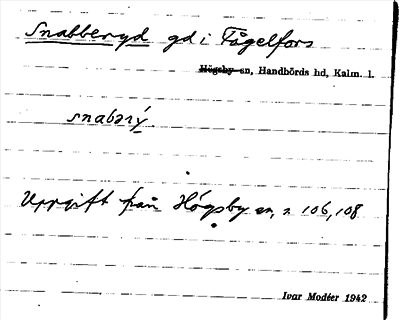 Snabberyd gd i Fågelfors
Högsby sn, Handbörds hd, Kalm. l.
snabərý.
Uppgift från Högsby sn, s 106, 108
Ivar Modéer 1942